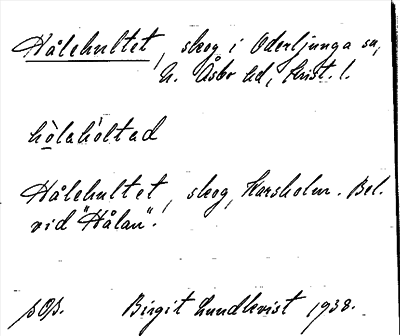 Hålehultet, skog i Oderljunga sn,
N. Åsbo hd, Krist. l.
hòlahóltad
Hålehultet, skog, Harsholm. Bel.
vid "Hålan".
pOp. Birgit Lundkvist 1938.